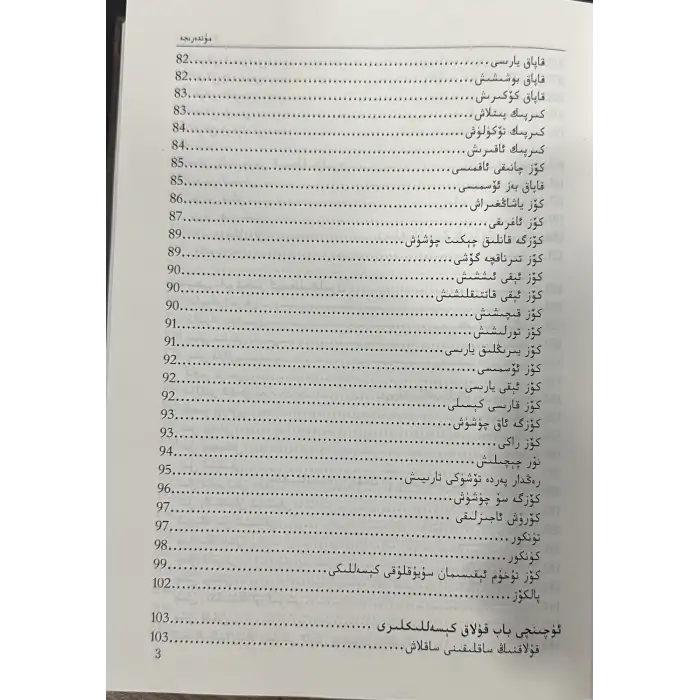 مۇندەرىجە
قاپاق يارىسى........82
قاپاق بوشىشىش........82
قاپاق كۆكىرىش........83
كىرپىك پىتلاش........83
كىرپىك تۆكۈلۈش........84
كىرپىك ئاقىرىش........84
كۆز چانىقى ئاقمىسى........85
قاپاق بەز ئۆسمىسى........85
كۆز ياشاڭغىراش........86
كۆز ئاغرىقى........87
كۆزگە قانلىق چېكىت چۈشۈش........89
كۆز تىرناقچە گۆشى........89
كۆز ئېقى ئىششىش........90
كۆز ئېقى قاتتىقلىشىش........90
كۆز قىچىشىش........90
كۆز تورلىشىش........91
كۆز يىرىڭلىق يارىسى........91
كۆز ئۆسمىسى........92
كۆز ئېقى يارىسى........92
كۆز قارىسى كېسىلى........92
كۆزگە ئاق چۈشۈش........93
كۆز راكى........93
نۇر چېچىلىش........94
رەڭدار پەردە تۆشۈكى تارىيىش........95
كۆزگە سۇ چۈشۈش........96
كۆرۈش ئاجىزلىقى........97
تۈنكور........97
كۈنكور........98
كۆز تۇخۇم ئېقىسىمان سۇيۇقلۇقى كېسەللىكى........99
پالكۆز........102
ئۈچىنچى باب قۇلاق كېسەللىكلىرى........103
قۇلاقنىڭ ساقلىقىنى ساقلاش........103
3